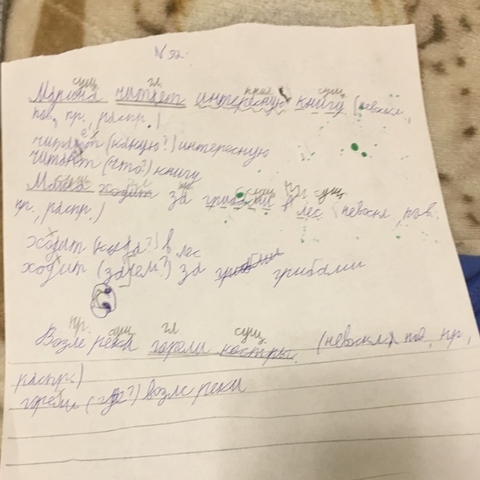 № 32.
сущ. гл. прил. сущ.
Марина читает интересную книгу (невоскл.,
пов., пр., распр.)
читает (какую?) интересную
читает (что?) книгу
сущ. пр. сущ.
ходит за грибами в лес (невоскл., пов.
пр., распр.)
ходит (куда?) в лес
ходит (зачем?) за грибами
пр. сущ. гл. сущ.
Возле реки горели костры. (невоскл., по, пр.,
распр.)
горели (где?) возле реки